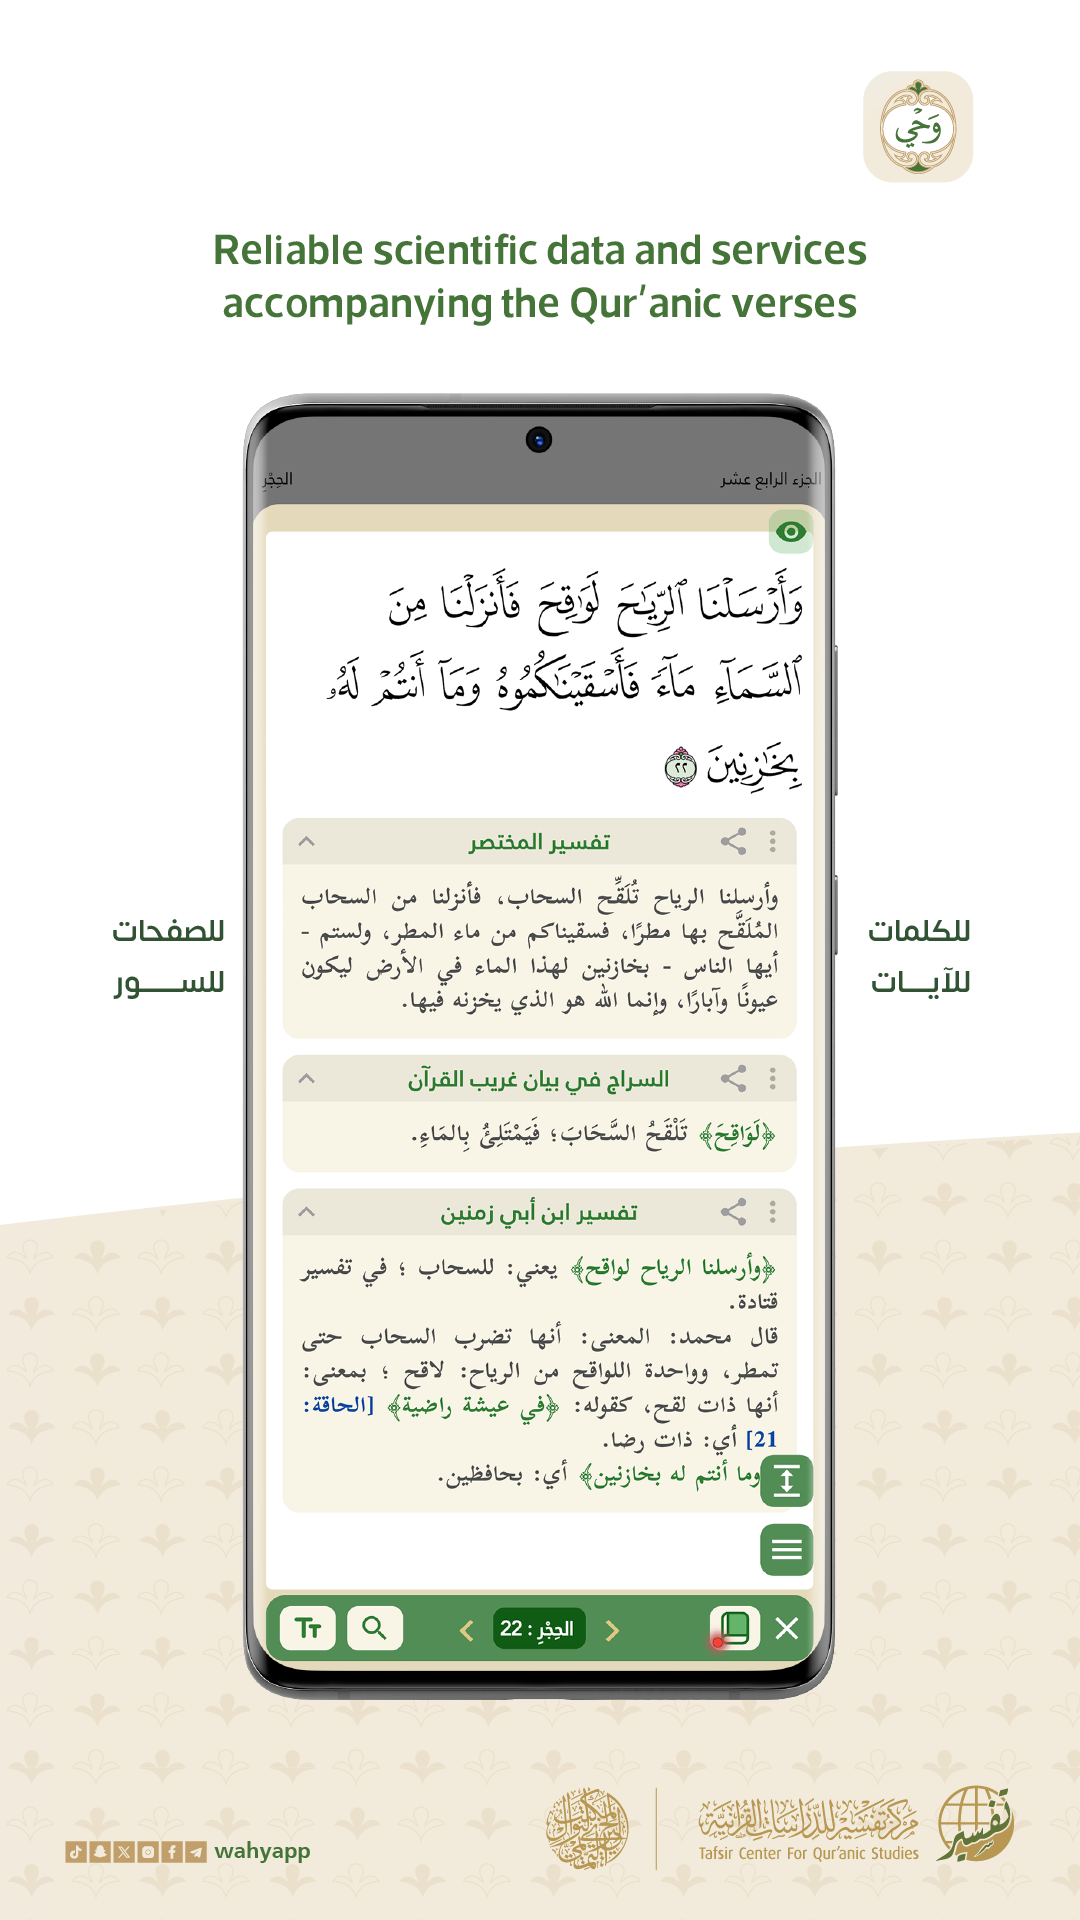 وَحْي
Reliable scientific data and services
accompanying the Qur'anic verses
الجزء الرابع عشر
الحِجْرِ
وَأَرْسَلْنَا ٱلرِّيَٰحَ لَوَٰقِحَ فَأَنزَلْنَا مِنَ
ٱلسَّمَآءِ مَآءً فَأَسْقَيْنَٰكُمُوهُ وَمَآ أَنتُمْ لَهُۥ
بِخَٰزِنِينَ ٢٢
تفسير المختصر
وأرسلنا الرياح تُلَقِّح السحاب، فأنزلنا من السحاب
المُلَقَّح بها مطرًا، فسقيناكم من ماء المطر، ولستم -
أيها الناس - بخازنين لهذا الماء في الأرض ليكون
عيونًا وآبارًا، وإنما الله هو الذي يخزنه فيها.
السراج في بيان غريب القرآن
﴿لَوَاقِحَ﴾ تَلْقَحُ السَّحَابَ؛ فَيَمْتَلِئُ بِالمَاءِ.
تفسير ابن أبي زمنين
﴿وأرسلنا الرياح لواقح﴾ يعني: للسحاب ؛ في تفسير
قتادة.
قال محمد: المعنى: أنها تضرب السحاب حتى
تمطر، وواحدة اللواقح من الرياح: لاقح ؛ بمعنى:
أنها ذات لقح، كقوله: ﴿في عيشة راضية﴾ [الحاقة:
21] أي: ذات رضا.
وما أنتم له بخازنين﴾ أي: بحافظين.
الحِجْرِ : 22
TT
للكلمات
للآيـــات
للصفحات
للســـــور
wahyapp
مركز تفسير للدراسات القرآنية
Tafsir Center For Qur'anic Studies
تفسير